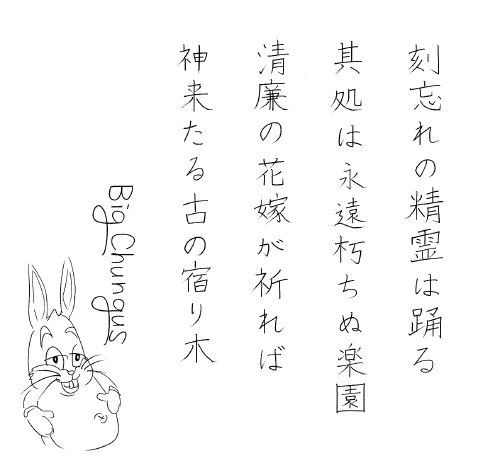 刻忘れの精霊は踊る
其処は永遠朽ちぬ楽園
清廉の花嫁が祈れば
神来たる古の宿り木
Big Chungus